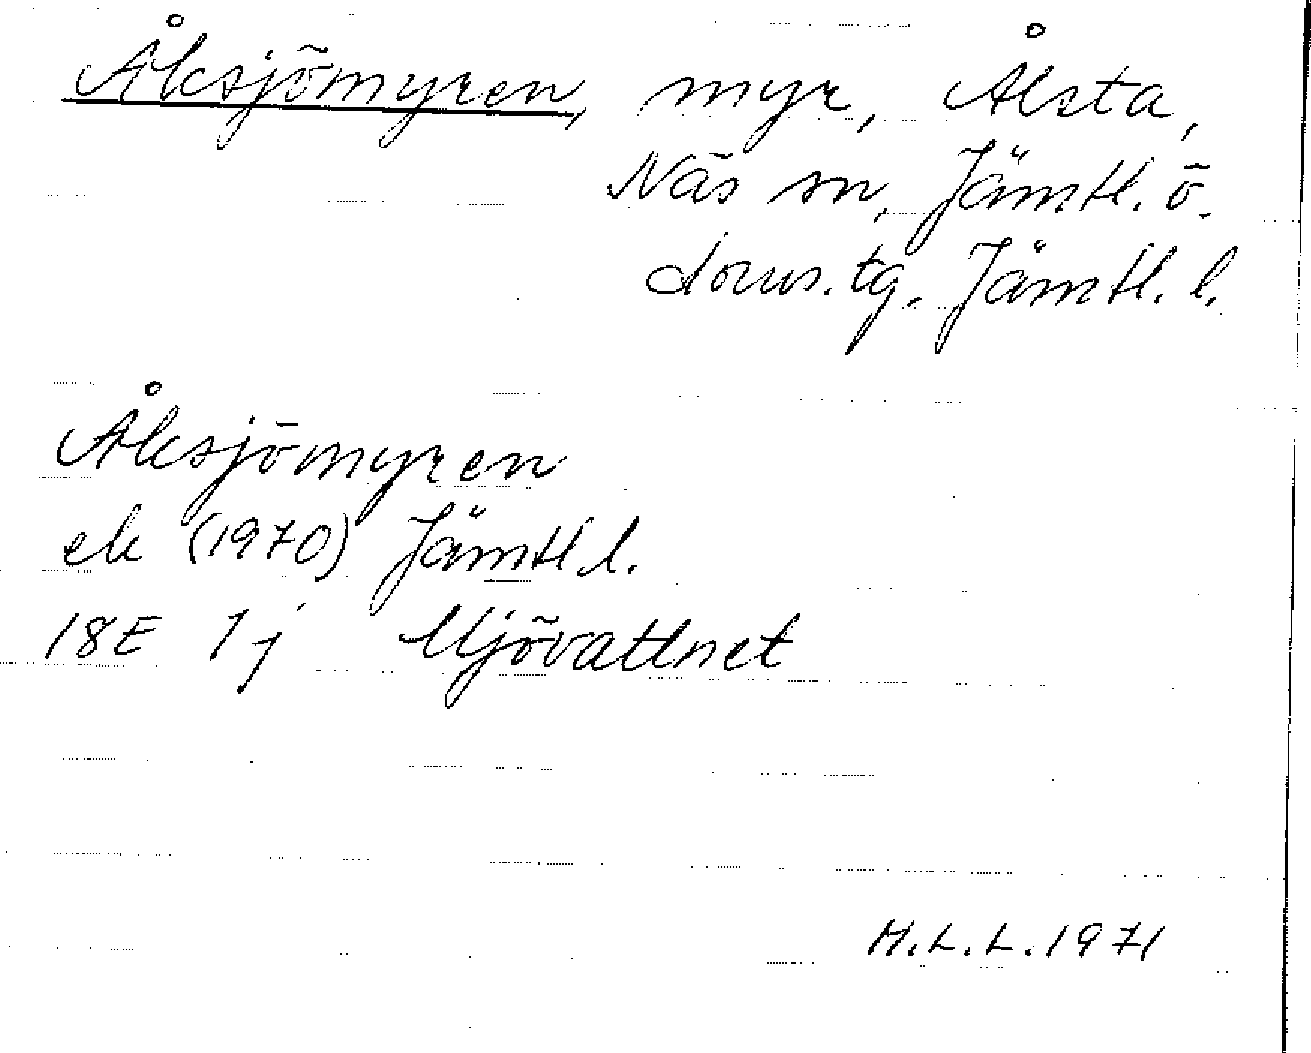 Åksjömyren, myr, Ålsta,
Näs sn, Jämtl. ö.
doms.tg. Jämtl. l.
Åksjömyren
ek (1970) Jämtl.l.
18E 1j Mjövattnet
H.L.L. 1971